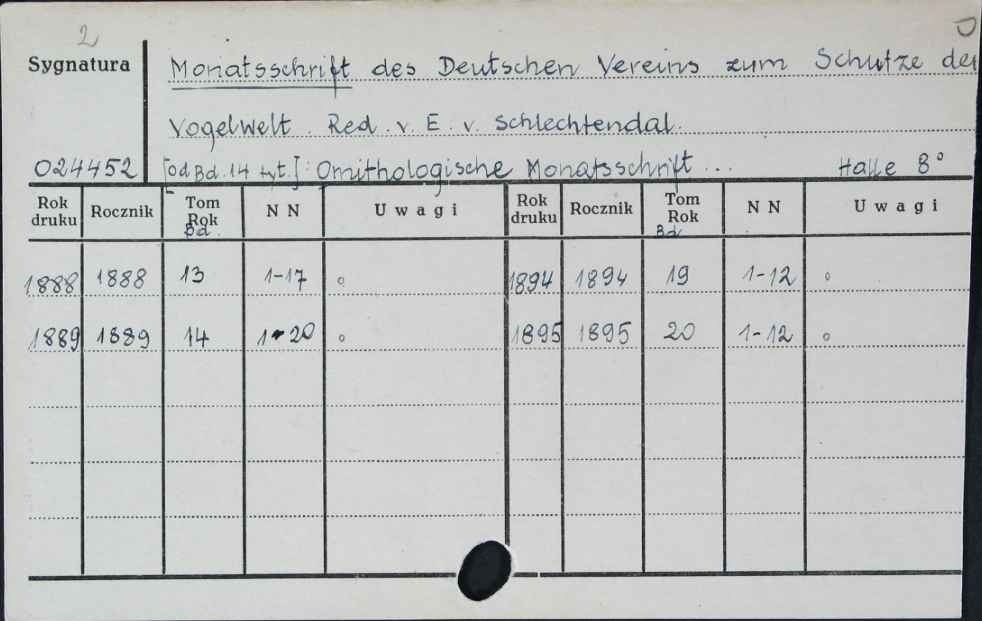 2
Sygnatura Monatsschrift des Deutschen Vereins zum Schutze der
Vogelwelt. Red. v. E. v. Schlechtendal.
024452 [od Bd. 14 tyt.]: Ornithologische Monatsschrift ... Halle 8°
Rok druku Rocznik Tom Rok Bd. NN Uwagi Rok druku Rocznik Tom Rok Bd NN Uwagi
1888 1888 13 1-17 ∘ 1894 1894 19 1-12 ∘
1889 1889 14 1-20 ∘ 1895 1895 20 1-12 ∘